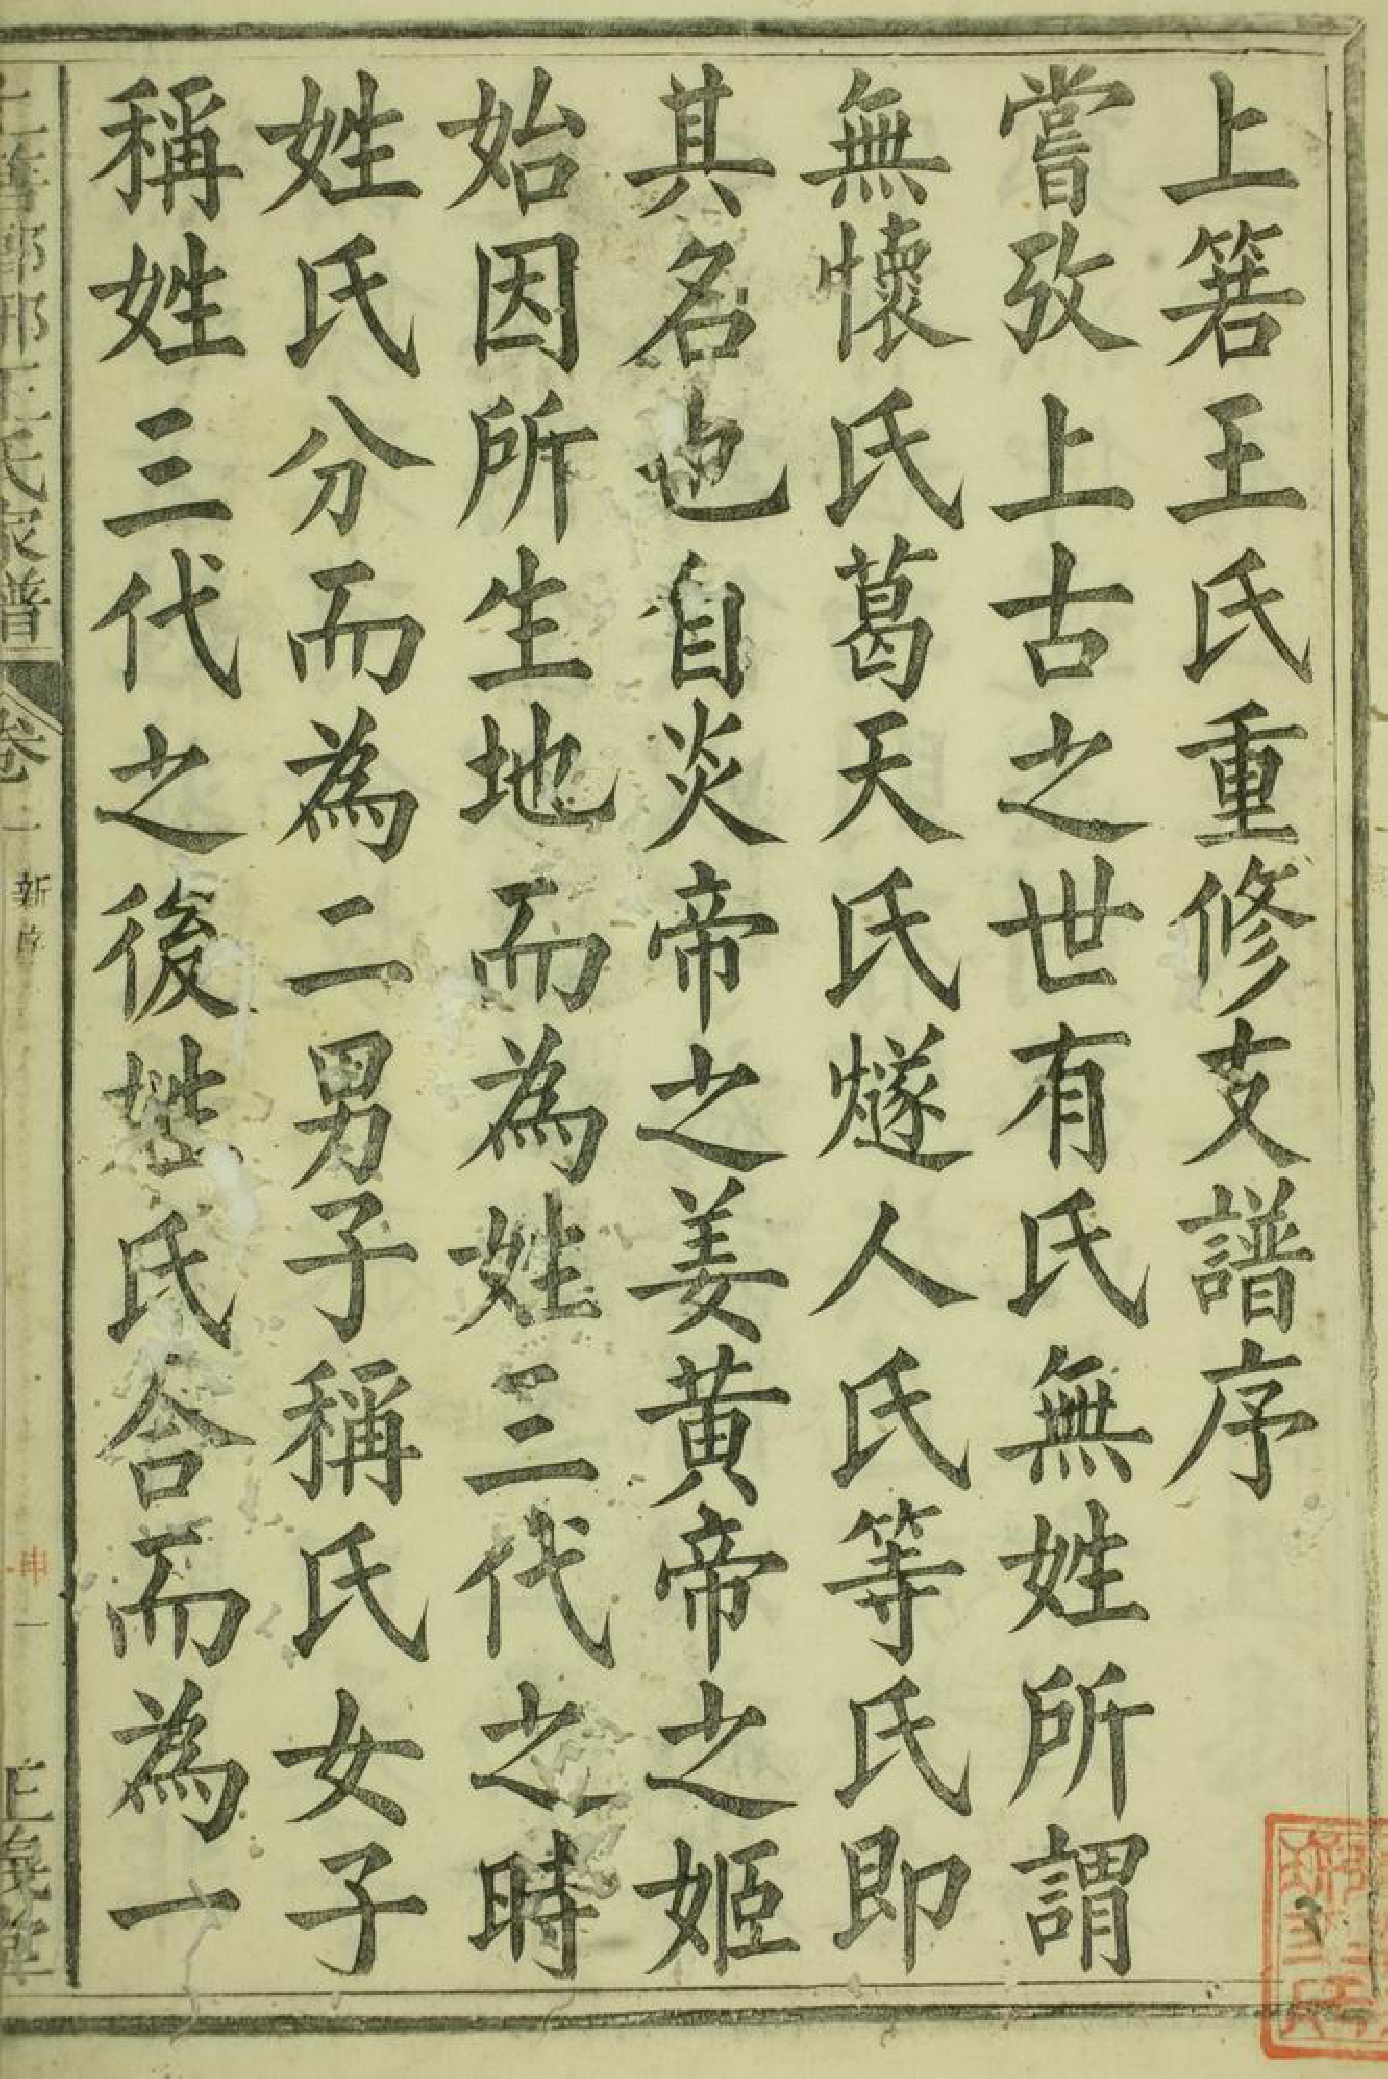 上箬王氏重修支譜序
嘗攷上古之世有氏無姓所謂
無懷氏葛天氏燧人氏等氏即
其名也自炎帝之姜黃帝之姬
始因所生地而為姓三代之時
姓氏分而為二男子稱氏女子
稱姓三代之後姓氏合而為一
王氏家譜
卷一
新序
一